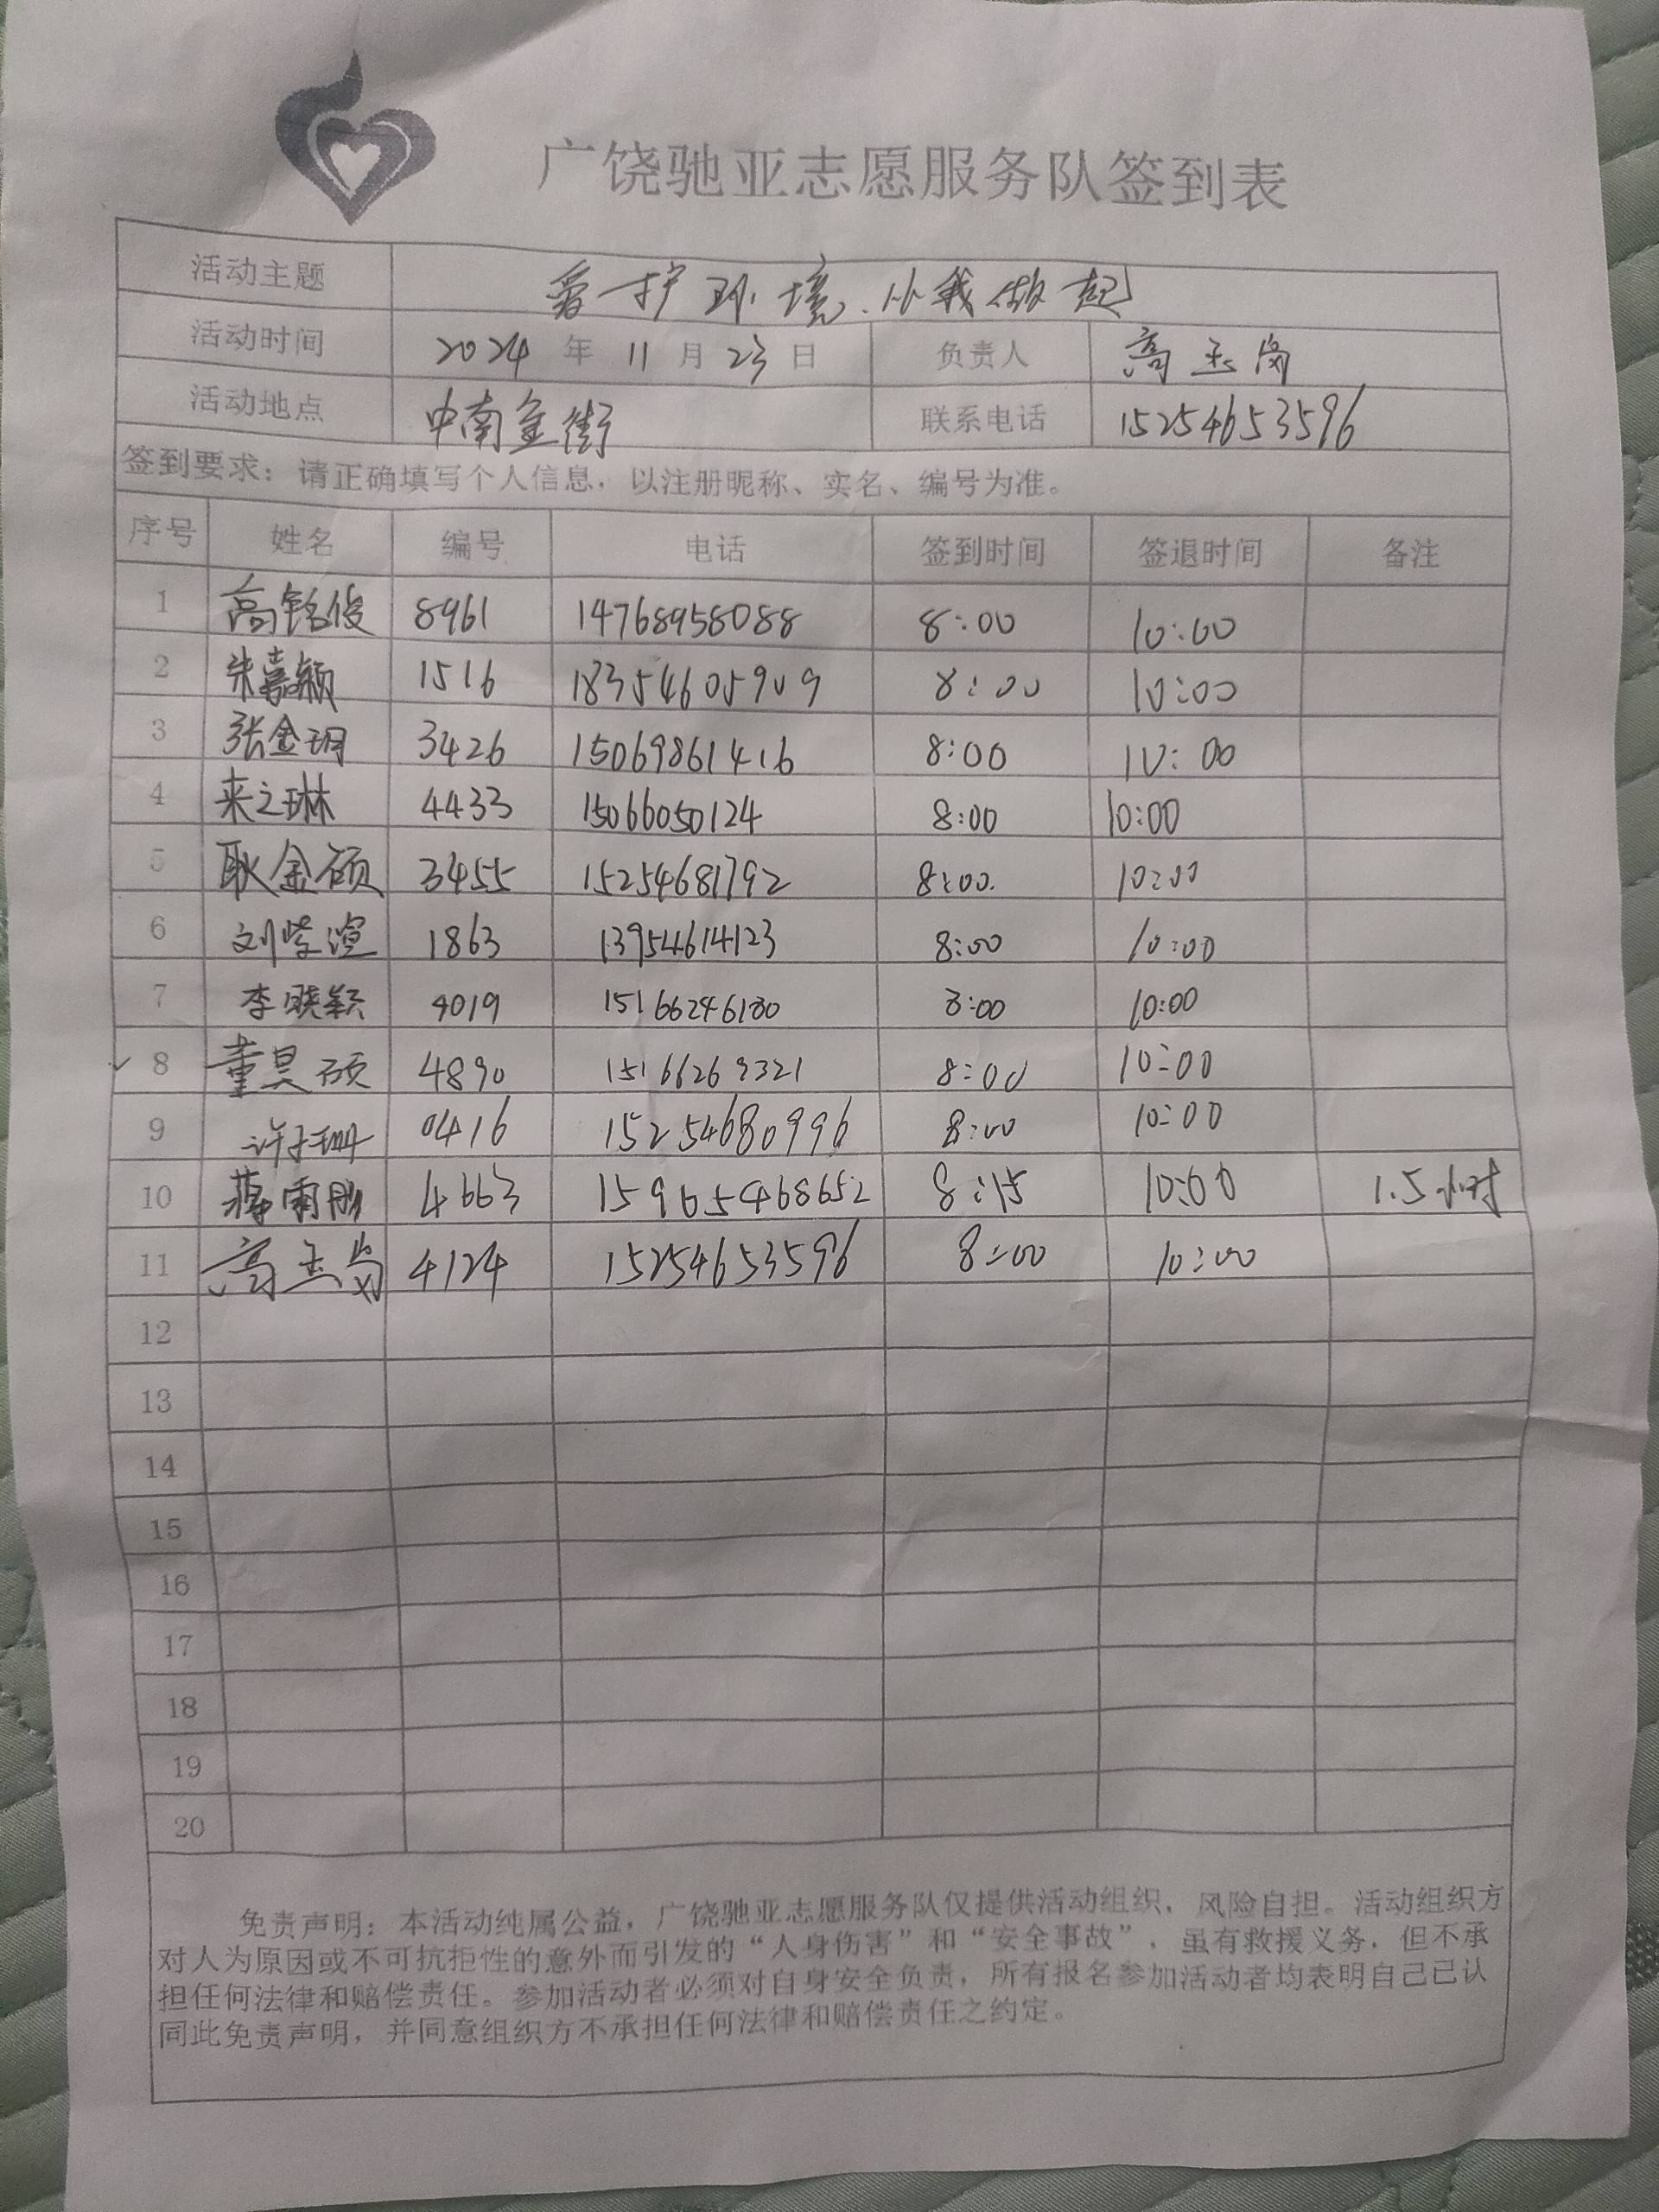 广饶驰亚志愿服务队签到表
活动主题 爱护环境.从我做起
活动时间 2024 年 11 月 23 日 负责人 高玉岗
活动地点 中南金街 联系电话 15254653596
签到要求：请正确填写个人信息，以注册昵称、实名、编号为准。
序号 姓名 编号 电话 签到时间 签退时间 备注
1 高铭俊 8961 14768958088 8:00 10:00
2 朱嘉颖 1516 18354605909 8:00 10:00
3 张金玥 3426 15069861416 8:00 10:00
4 来之琳 4433 15066050124 8:00 10:00
5 耿金硕 3455 15254681792 8:00. 10:00
6 刘梓渲 1863 13954614123 8:00 10:00
7 李晓颖 4019 15166246180 8:00 10:00
8 董昊硕 4890 15166269321 8:00 10:00
9 许子珊 0416 15254680996 8:00 10:00
10 蒋雨彤 4663 15965468652 8:15 10:00 1.5小时
11 高玉岗 4124 15254653596 8:00 10:00
12
13
14
15
16
17
18
19
20
免责声明：本活动纯属公益，广饶驰亚志愿服务队仅提供活动组织，风险自担。活动组织方
对人为原因或不可抗拒性的意外而引发的“人身伤害”和“安全事故”，虽有救援义务，但不承
担任何法律和赔偿责任。参加活动者必须对自身安全负责，所有报名参加活动者均表明自己已认
同此免责声明，并同意组织方不承担任何法律和赔偿责任之约定。